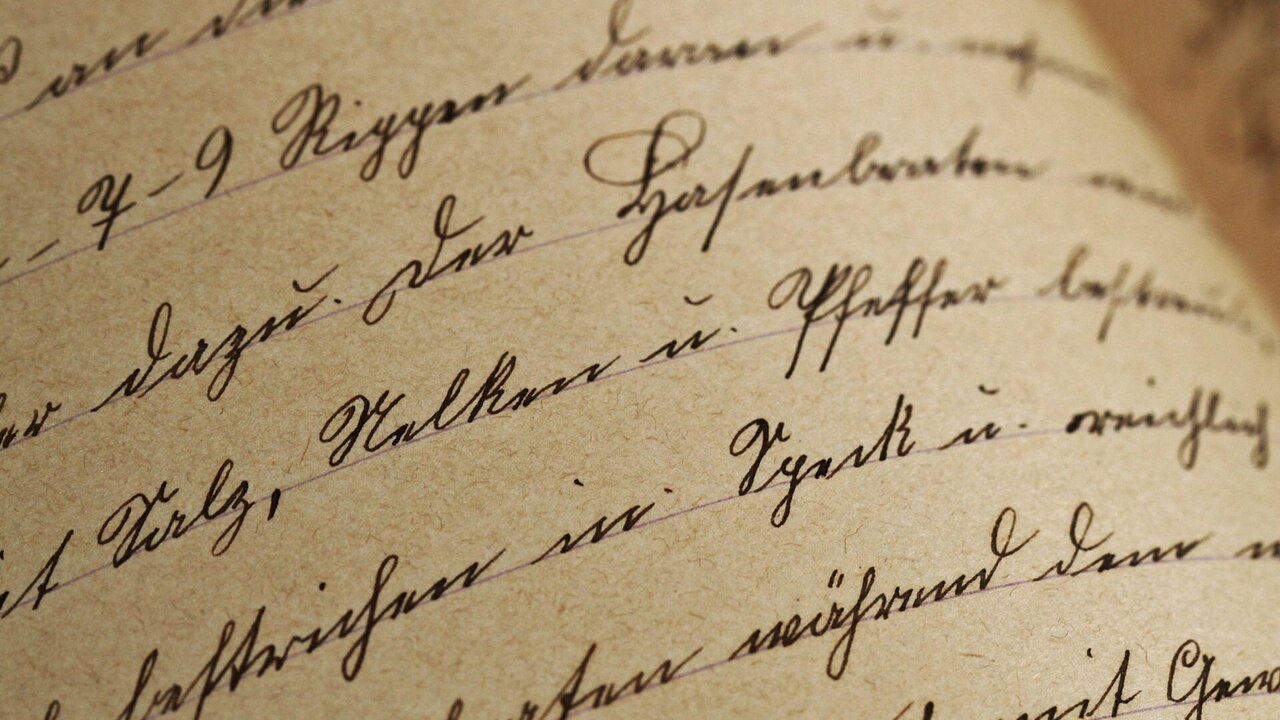 an die
7-9 Rippen daran u.
dazu. Der Hasenbraten
Salz, Nelken u. Pfeffer bestreut
bestrichen in Speck u. reichlich
während dem
mit